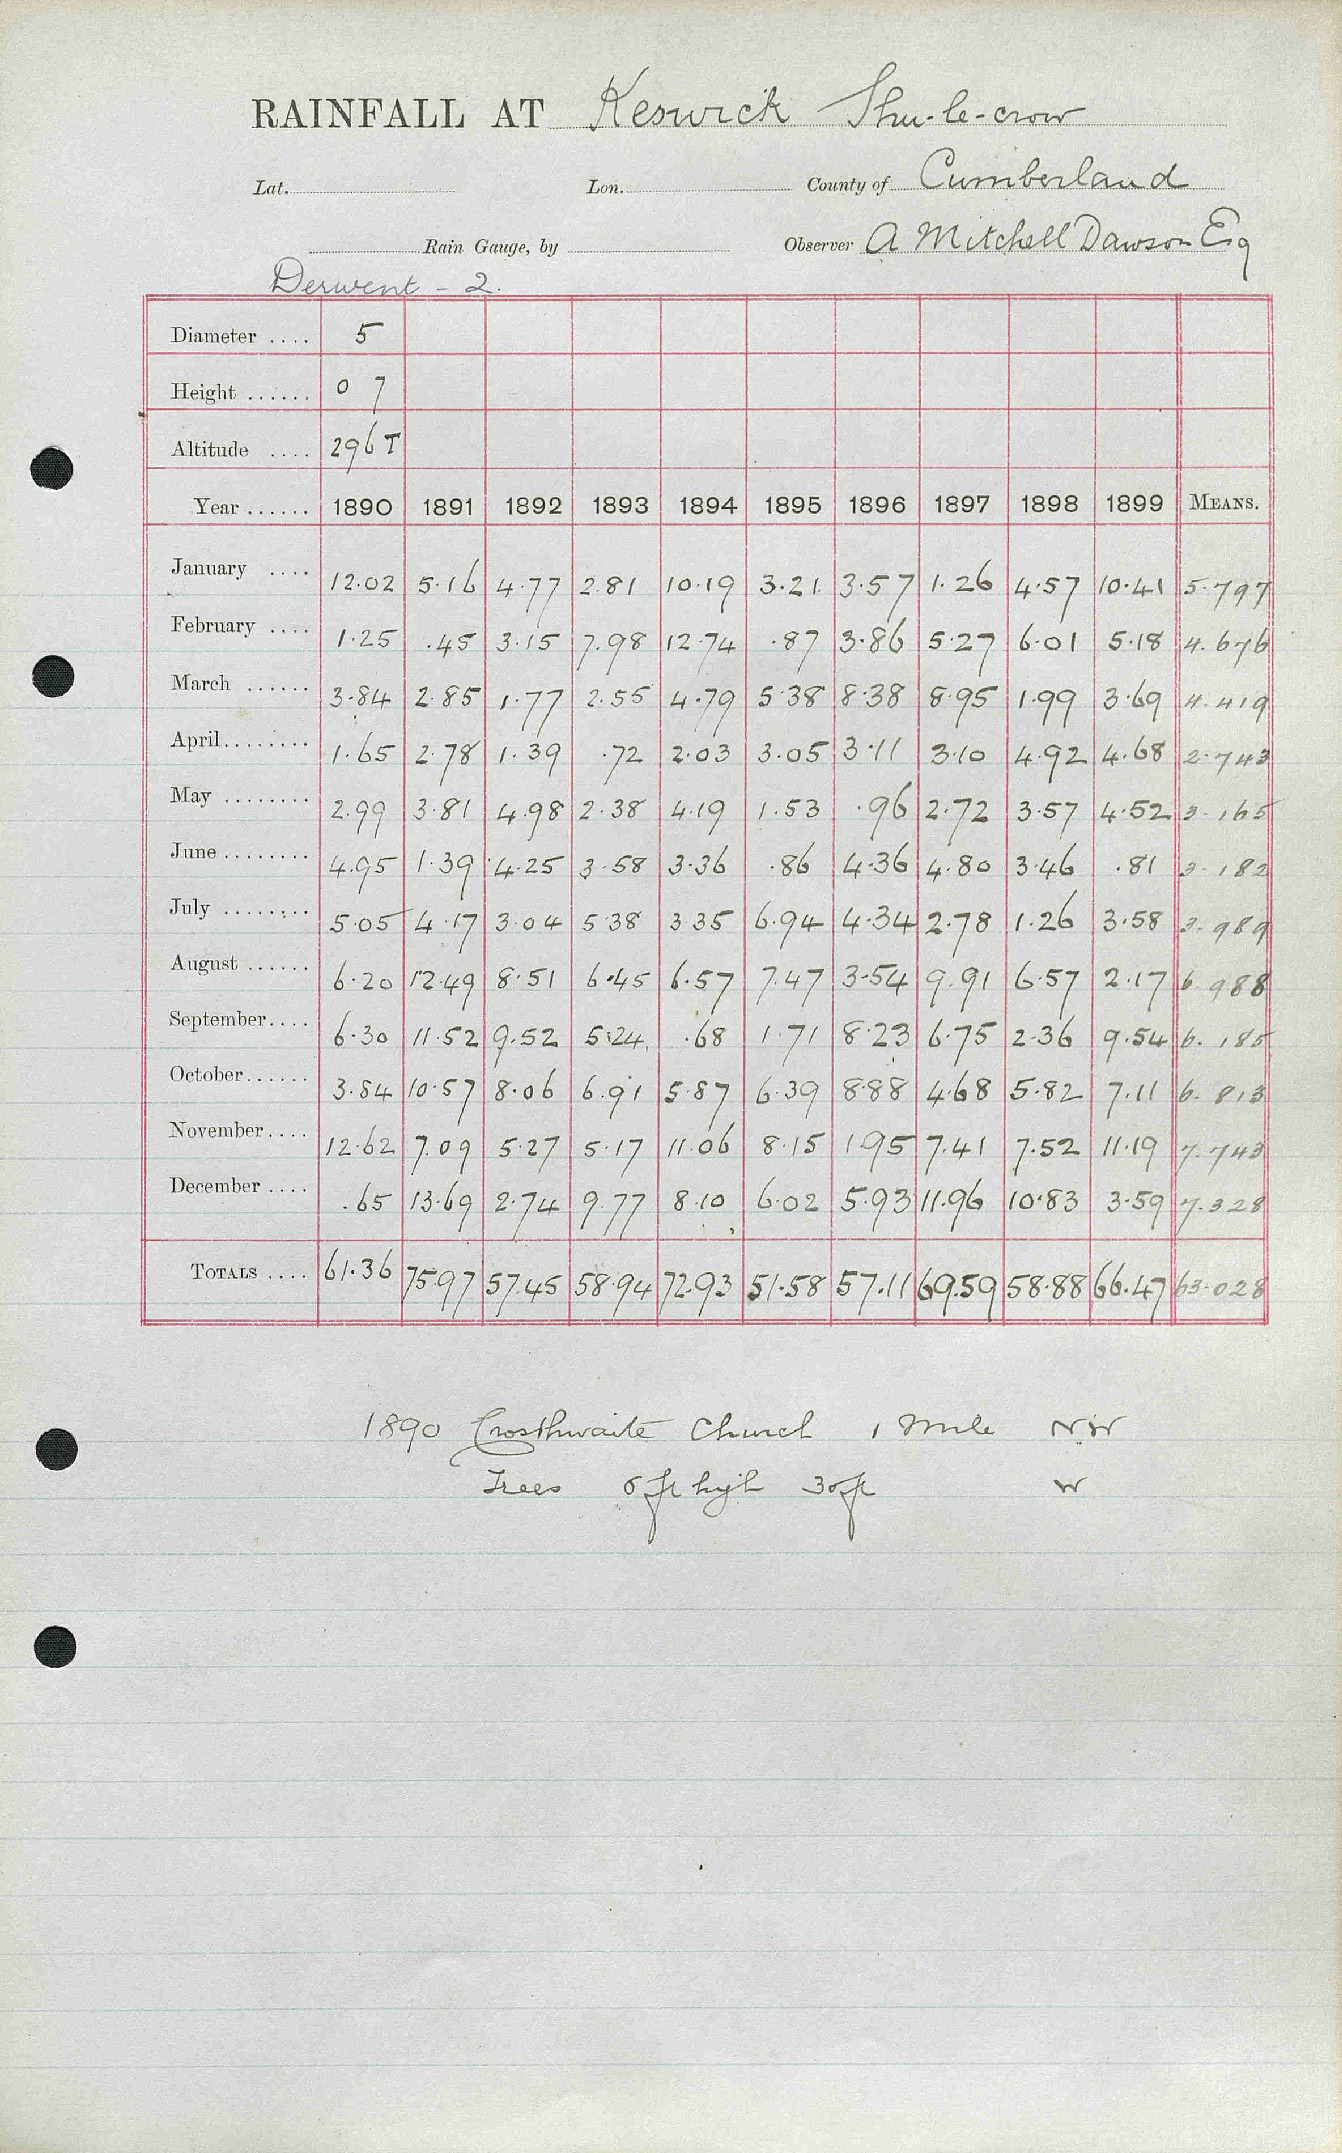 RAINFALL AT Keswick Shu-le-crow
Lat. Lon. County of Cumberland
Rain Gauge, by Observer A Mitchell Dawson Esq
Derwent - 2.
Diameter .... 5
Height ...... 0 7
Altitude .... 296 T
Year ...... 1890 1891 1892 1893 1894 1895 1896 1897 1898 1899 MEANS.
January .... 12.02 5.16 4.77 2.81 10.19 3.21 3.57 1.26 4.57 10.41 5.797
February .... 1.25 .45 3.15 7.98 12.74 .87 3.86 5.27 6.01 5.18 4.676
March ...... 3.84 2.85 1.77 2.55 4.79 5.38 8.38 8.95 1.99 3.69 4.419
April........ 1.65 2.78 1.39 .72 2.03 3.05 3.11 3.10 4.92 4.68 2.743
May ........ 2.99 3.81 4.98 2.38 4.19 1.53 .96 2.72 3.57 4.52 3.165
June ........ 4.95 1.39 4.25 3.58 3.36 .86 4.36 4.80 3.46 .81 3.182
July ........ 5.05 4.17 3.04 5.38 3.35 6.94 4.34 2.78 1.26 3.58 3.989
August ...... 6.20 12.49 8.51 6.45 6.57 7.47 3.54 9.91 6.57 2.17 6.988
September.... 6.30 11.52 9.52 5.24 .68 1.71 8.23 6.75 2.36 9.54 6.185
October...... 3.84 10.57 8.06 6.91 5.87 6.39 8.88 4.68 5.82 7.11 6.813
November.... 12.62 7.09 5.27 5.17 11.06 8.15 1.95 7.41 7.52 11.19 7.743
December .... .65 13.69 2.74 9.77 8.10 6.02 5.93 11.96 10.83 3.59 7.328
TOTALS .... 61.36 75.97 57.45 58.94 72.93 51.58 57.11 69.59 58.88 66.47 63.028
1890 Crosthwaite Church 1 Mile NW
Trees 6 ft high 30 ft W